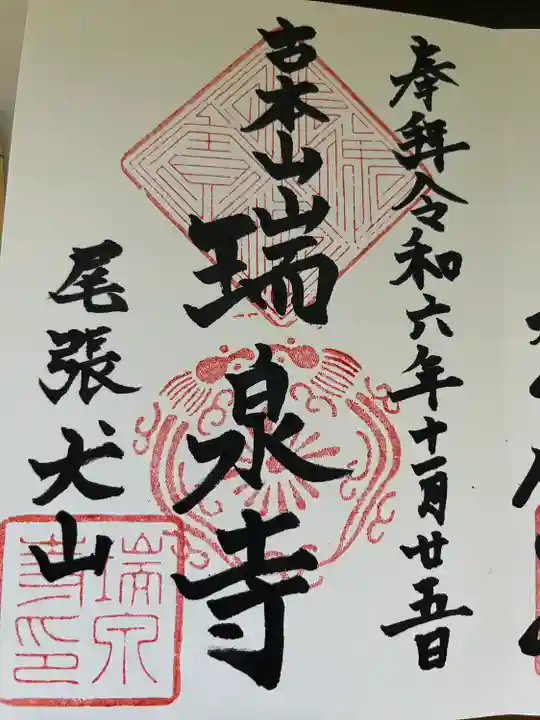 奉拜令和六年十一月廿五日
古本山瑞泉寺
尾張犬山
瑞泉寺印